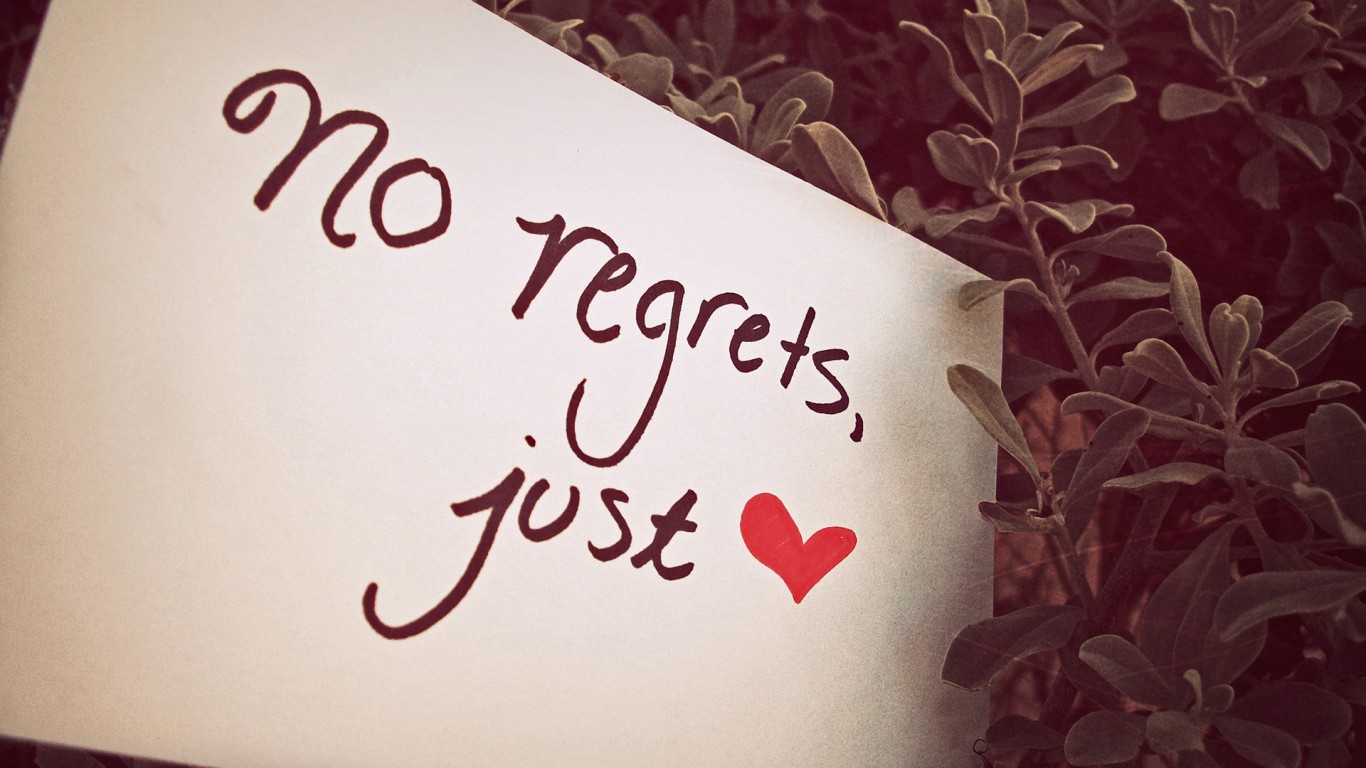 No regrets,
just ❤